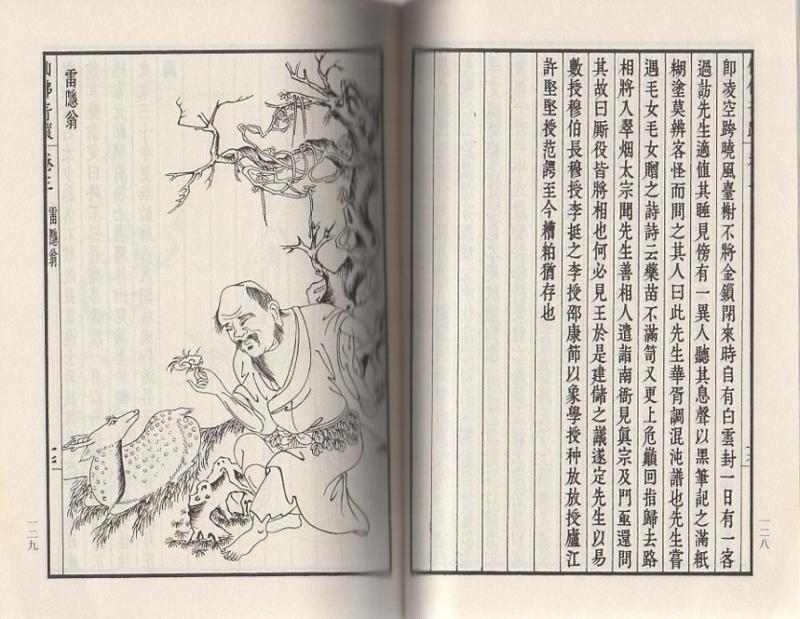 卽凌空跨曉風臺榭不將金鎖閉來時自有白雲封一日有一客
過訪先生適值其睡見傍有一異人聽其息聲以黑筆記之滿紙
糊塗莫辨客怪而問之其人曰此先生華胥調混沌譜也先生嘗
遇毛女毛女贈之詩詩云藥苗不滿笥又更上危巔回指歸去路
相將入翠烟太宗聞先生善相人遣詣南衙見眞宗及門亟還問
其故曰厮役皆將相也何必見王於是建儲之議遂定先生以易
數授穆伯長穆授李挺之李授邵康節以象學授种放放授廬江
許堅堅授范諤至今糟粕猶存也
一二八
雷隱翁
仙佛奇蹤 卷三 雷隱翁
一二九